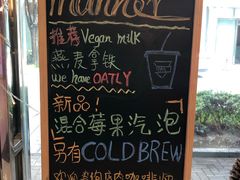 manner
推荐 Vegan milk
燕麦拿铁
we have OATLY
新品!
混合莓果汽泡
另有COLD BREW